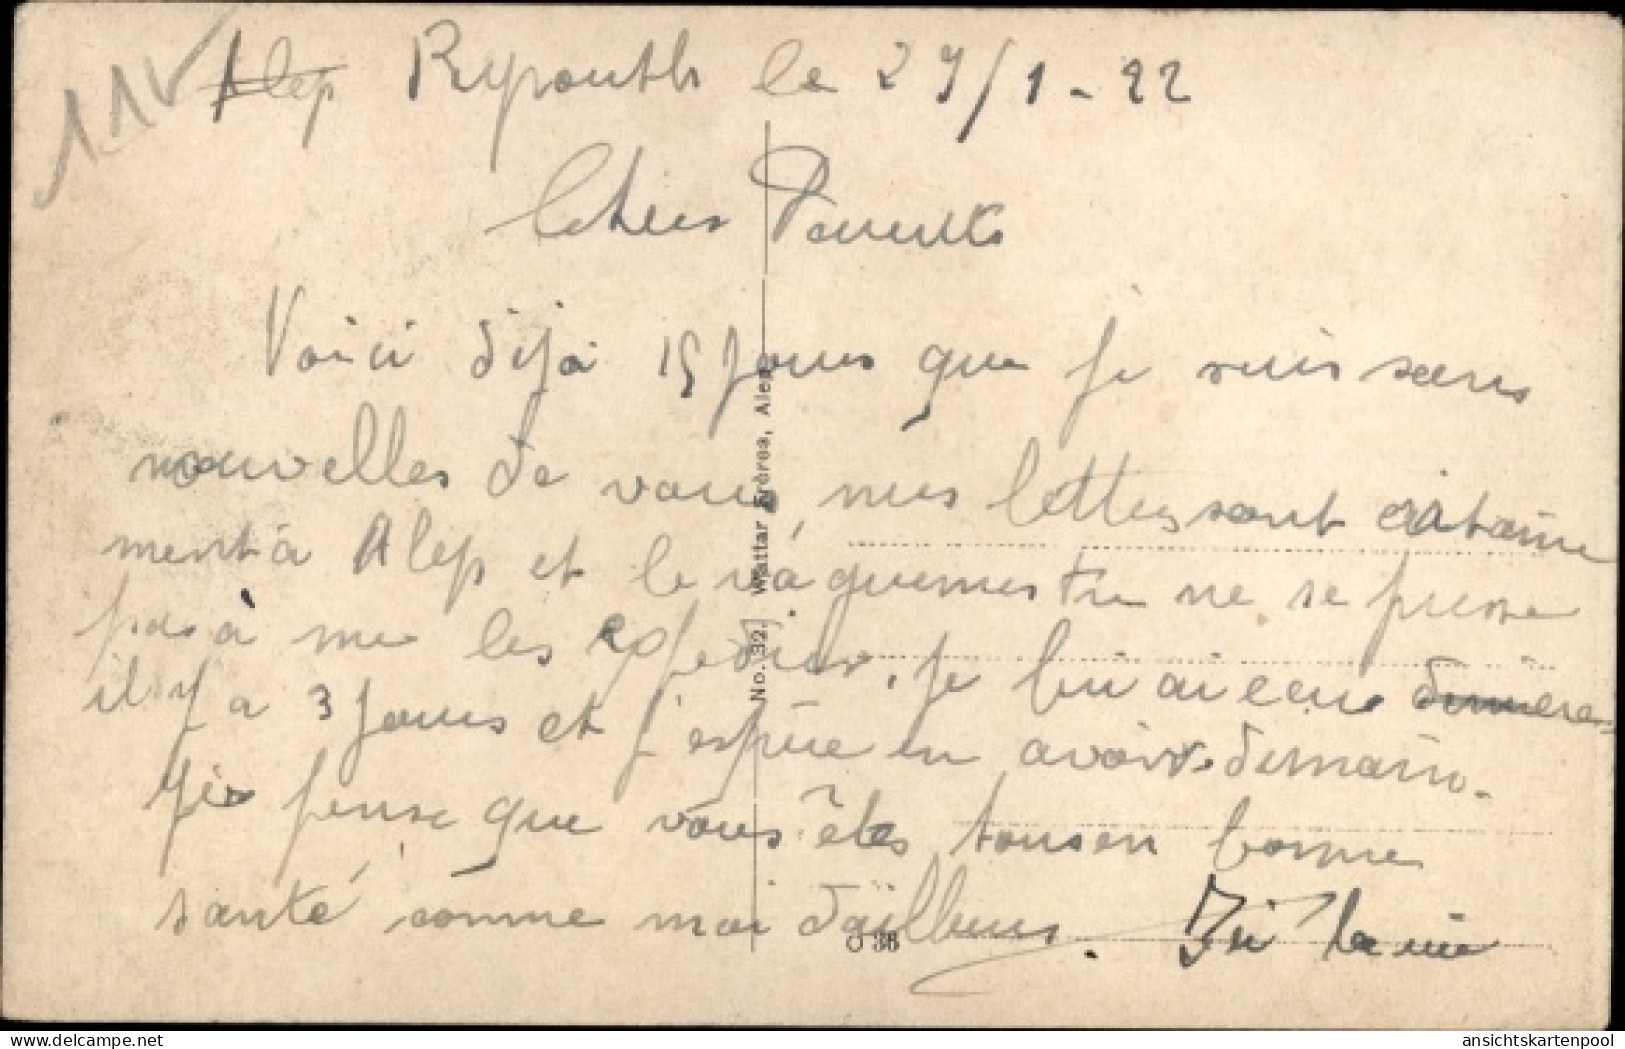 110
Alep Ryponth le 29/1-22
Chers Parents
Voici déja 15 Jours que je suis sans
nouvelles de vous, mes lettres sont certaine
ment à Alep et le vaguemestre ne se presse
pas à me les expedier. Je lui ai ecris
il y a 3 Jours et j'espère en avoir demain.
Je pense que vous êtes tous en bonne
santé comme moi dailleurs. Ici la vie
No. 32. Wattar Frères, Alep
O 38
ansichtskartenpool.de
ansichtskartenpool